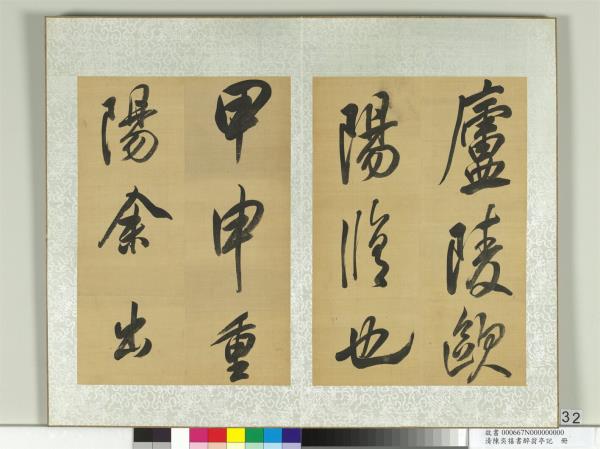 廬陵歐
陽脩也
甲申重
陽余出
32
故書000667N000000000
清陳奕禧書醉翁亭記　冊